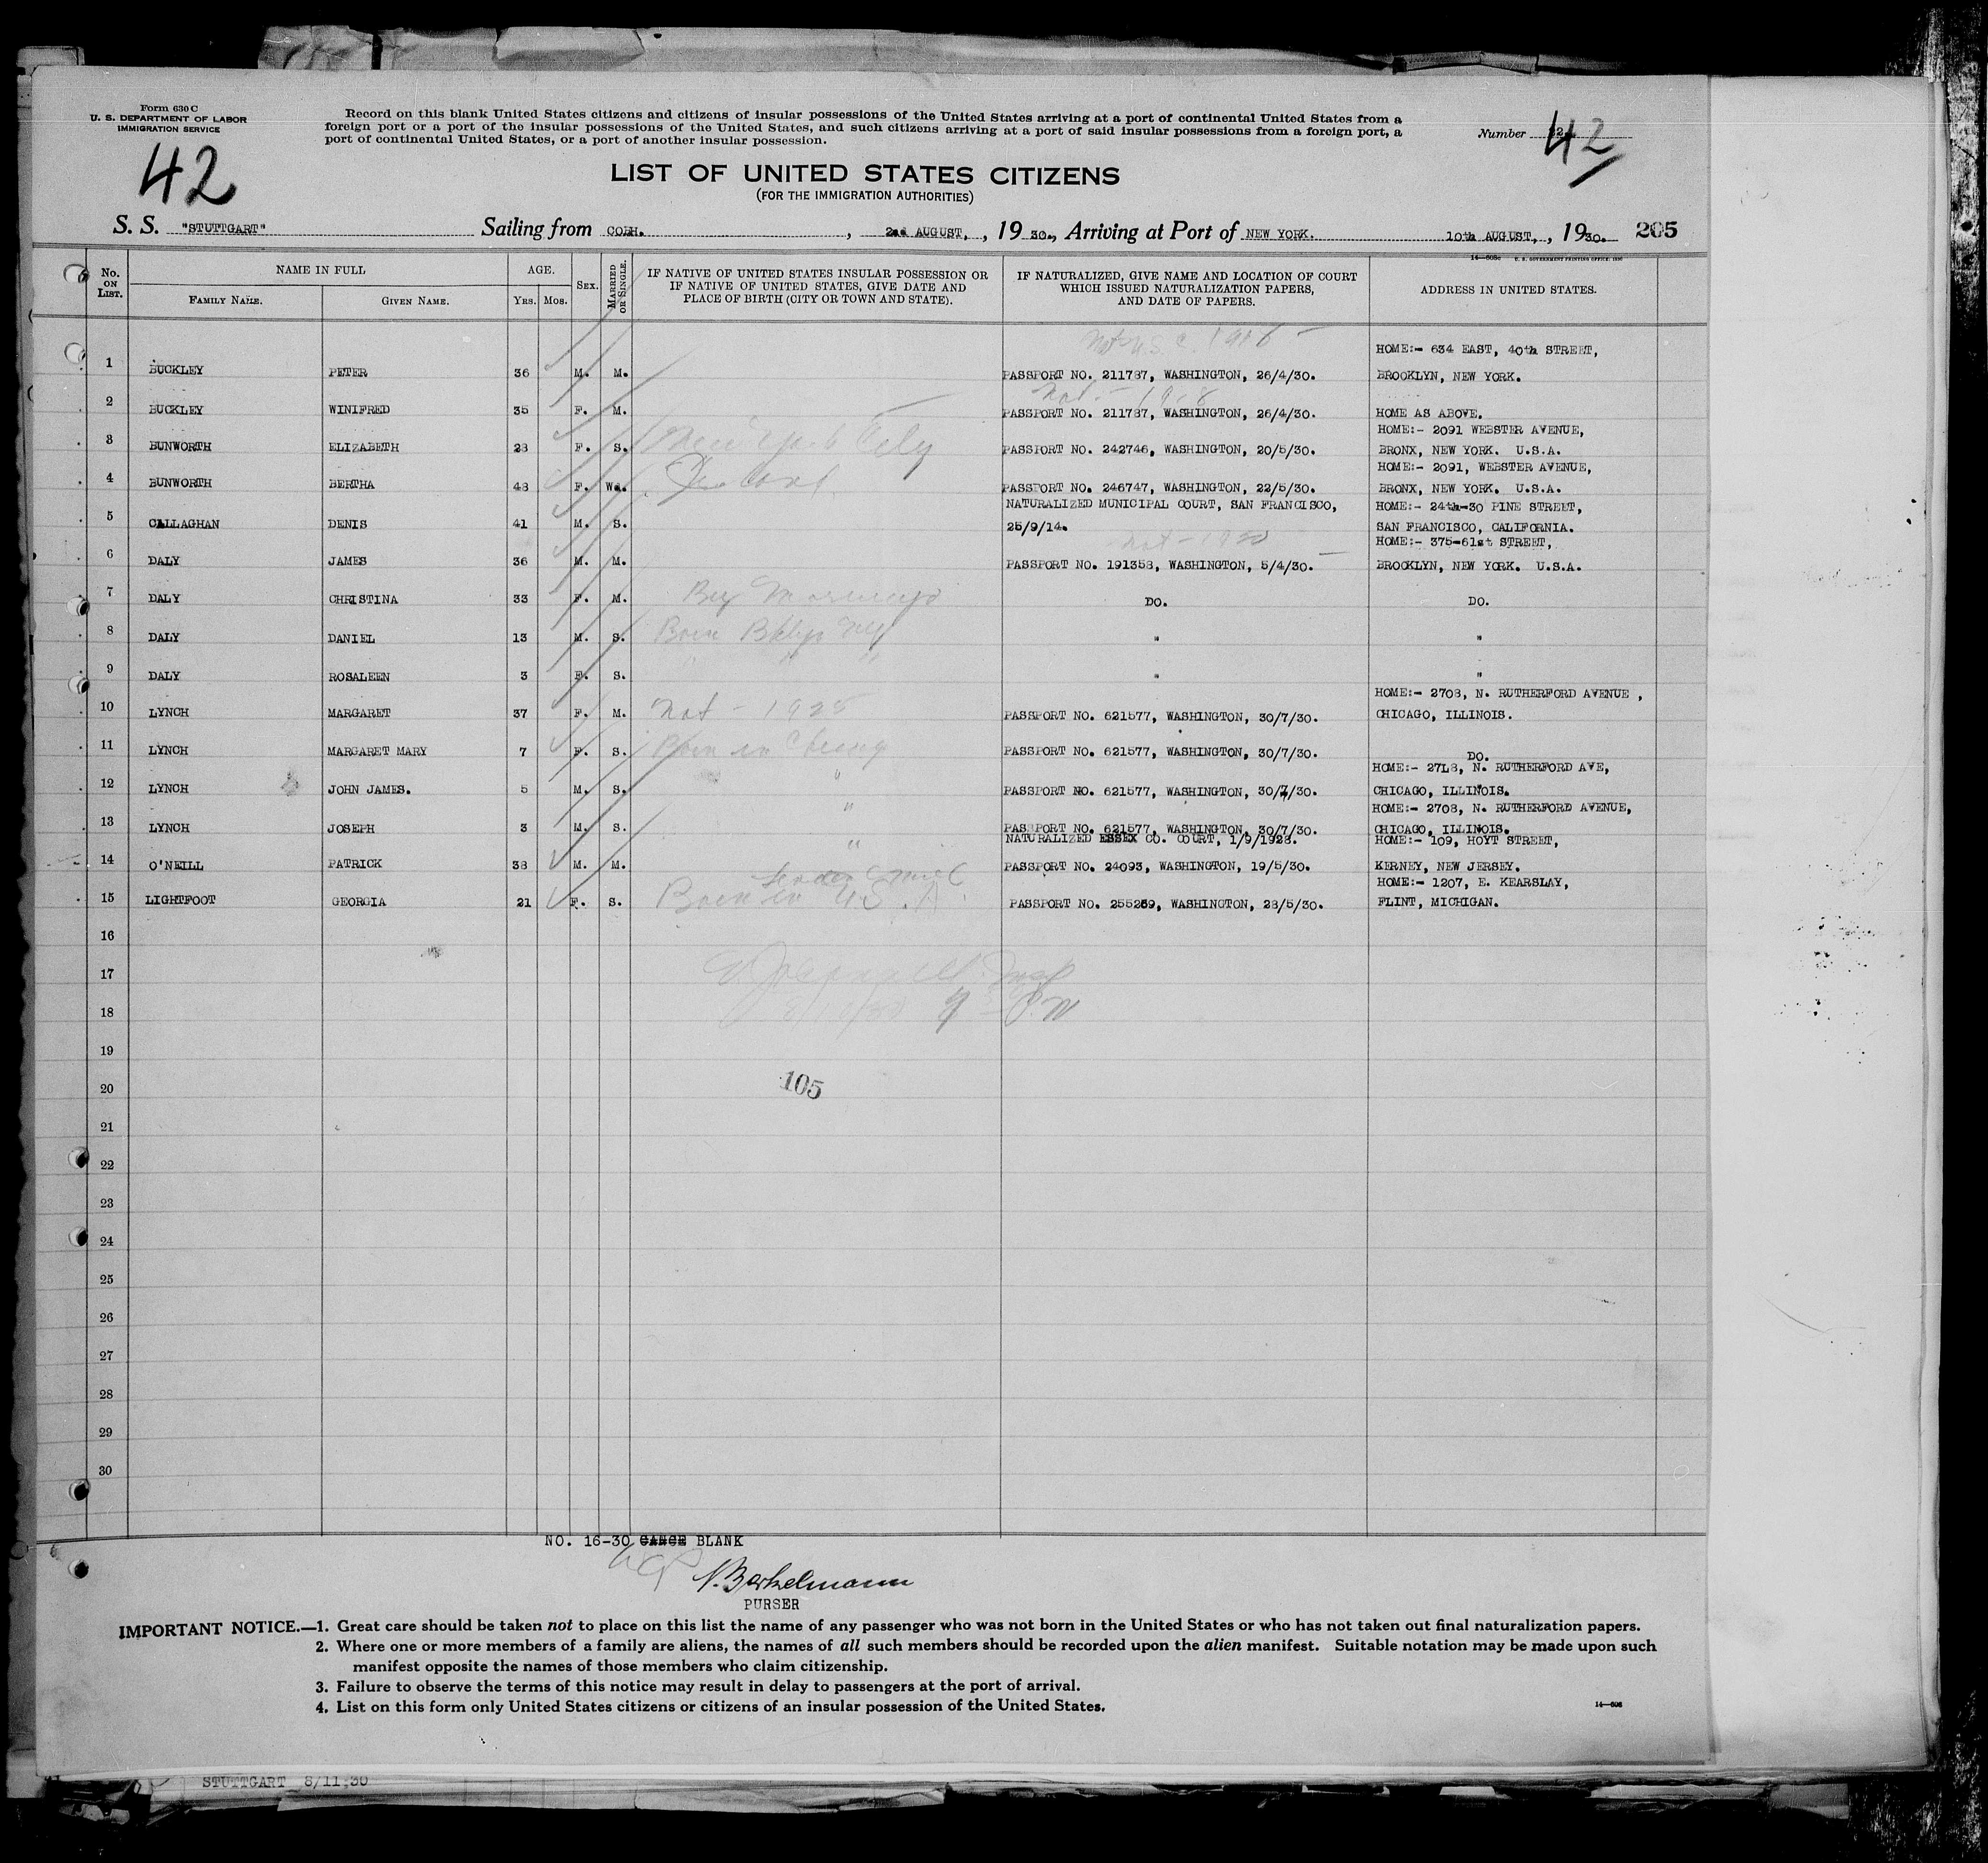 Form 630 C
U. S. DEPARTMENT OF LABOR
IMMIGRATION SERVICE
Record on this blank United States citizens and citizens of insular possessions of the United States arriving at a port of continental United States from a
foreign port or a port of the insular possessions of the United States, and such citizens arriving at a port of said insular possessions from a foreign port, a
port of continental United States, or a port of another insular possession.
Number 42
42
LIST OF UNITED STATES CITIZENS
(FOR THE IMMIGRATION AUTHORITIES)
S. S. "STUTTGART" Sailing from COBH. , 2nd AUGUST, , 19 30., Arriving at Port of NEW YORK. 10th AUGUST, , 19 30. 205
No. ON LIST. NAME IN FULL FAMILY NAME. GIVEN NAME. AGE. YRS. MOS. SEX. MARRIED OR SINGLE. IF NATIVE OF UNITED STATES INSULAR POSSESSION OR IF NATIVE OF UNITED STATES, GIVE DATE AND PLACE OF BIRTH (CITY OR TOWN AND STATE). IF NATURALIZED, GIVE NAME AND LOCATION OF COURT WHICH ISSUED NATURALIZATION PAPERS, AND DATE OF PAPERS. ADDRESS IN UNITED STATES.
HOME:- 634 EAST, 40th STREET,
1 BUCKLEY PETER 36 M. M. PASSPORT NO. 211787, WASHINGTON, 26/4/30. BROOKLYN, NEW YORK.
2 BUCKLEY WINIFRED 35 F. M. PASSPORT NO. 211787, WASHINGTON, 26/4/30. HOME AS ABOVE.
HOME:- 2091 WEBSTER AVENUE,
3 BUNWORTH ELIZABETH 23 F. S. New York City PASSPORT NO. 242746, WASHINGTON, 20/5/30. BRONX, NEW YORK. U.S.A.
HOME:- 2091, WEBSTER AVENUE,
4 BUNWORTH BERTHA 48 F. Wd. PASSPORT NO. 246747, WASHINGTON, 22/5/30. BRONX, NEW YORK. U.S.A.
NATURALIZED MUNICIPAL COURT, SAN FRANCISCO, HOME:- 24th-30 PINE STREET,
5 CALLAGHAN DENIS 41 M. S. 25/9/14. SAN FRANCISCO, CALIFORNIA.
HOME:- 375-61st STREET,
6 DALY JAMES 36 M. M. PASSPORT NO. 191358, WASHINGTON, 5/4/30. BROOKLYN, NEW YORK. U.S.A.
7 DALY CHRISTINA 33 F. M. By Marriage DO. DO.
8 DALY DANIEL 13 M. S. Born Bklyn NY " "
9 DALY ROSALEEN 3 F. S. " " " "
HOME:- 2708, N. RUTHERFORD AVENUE ,
10 LYNCH MARGARET 37 F. M. Nat - 1925 PASSPORT NO. 621577, WASHINGTON, 30/7/30. CHICAGO, ILLINOIS.
11 LYNCH MARGARET MARY 7 F. S. Born in Chicago PASSPORT NO. 621577, WASHINGTON, 30/7/30. DO.
HOME:- 27L8, N. RUTHERFORD AVE,
12 LYNCH JOHN JAMES. 5 M. S. " PASSPORT NO. 621577, WASHINGTON, 30/7/30. CHICAGO, ILLINOIS.
HOME:- 2708, N. RUTHERFORD AVENUE,
13 LYNCH JOSEPH 3 M. S. " PASSPORT NO. 621577, WASHINGTON, 30/7/30. CHICAGO, ILLINOIS.
NATURALIZED ESSEX CO. COURT, 1/9/1928. HOME:- 109, HOYT STREET,
14 O'NEILL PATRICK 38 M. M. " PASSPORT NO. 24093, WASHINGTON, 19/5/30. KERNEY, NEW JERSEY.
HOME:- 1207, E. KEARSLAY,
15 LIGHTFOOT GEORGIA 21 F. S. Born in U.S.A. PASSPORT NO. 255259, WASHINGTON, 28/5/30. FLINT, MICHIGAN.
16
17
18
19
20
105
21
22
23
24
25
26
27
28
29
30
NO. 16-30 BLANK
PURSER
IMPORTANT NOTICE.—1. Great care should be taken not to place on this list the name of any passenger who was not born in the United States or who has not taken out final naturalization papers.
2. Where one or more members of a family are aliens, the names of all such members should be recorded upon the alien manifest. Suitable notation may be made upon such
manifest opposite the names of those members who claim citizenship.
3. Failure to observe the terms of this notice may result in delay to passengers at the port of arrival.
4. List on this form only United States citizens or citizens of an insular possession of the United States.
STUTTGART 8/11.30